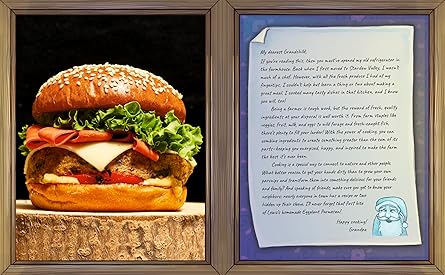 My dearest Grandchild,
If you're reading this, then you must've opened my old refrigerator in
the farmhouse. Back when I first moved to Stardew Valley, I wasn't
much of a chef. However, with all the fresh produce I had at my
fingertips, I couldn't help but learn a thing or two about making a
great meal. I cooked many tasty dishes in that kitchen, and I know
you will, too!
Being a farmer is tough work, but the reward of fresh, quality
ingredients at your disposal is well worth it. From farm staples like
veggies, fruit, milk, and eggs to wild forage and fresh caught fish,
there's plenty to fill your larder! With the power of cooking, you can
combine ingredients to create something greater than the sum of its
parts—keeping you energized, happy, and inspired to make the farm
the best it's ever been.
Cooking is a special way to connect to nature and other people.
What better reason to get your hands dirty than to grow your own
parsnips and transform them into something delicious for your friends
and family? And speaking of friends, make sure you get to know your
neighbors; nearly everyone in town has a recipe or two
hidden up their sleeve. I'll never forget that first bite
of Lewis's homemade Eggplant Parmesan!
Happy cooking!
Grandpa